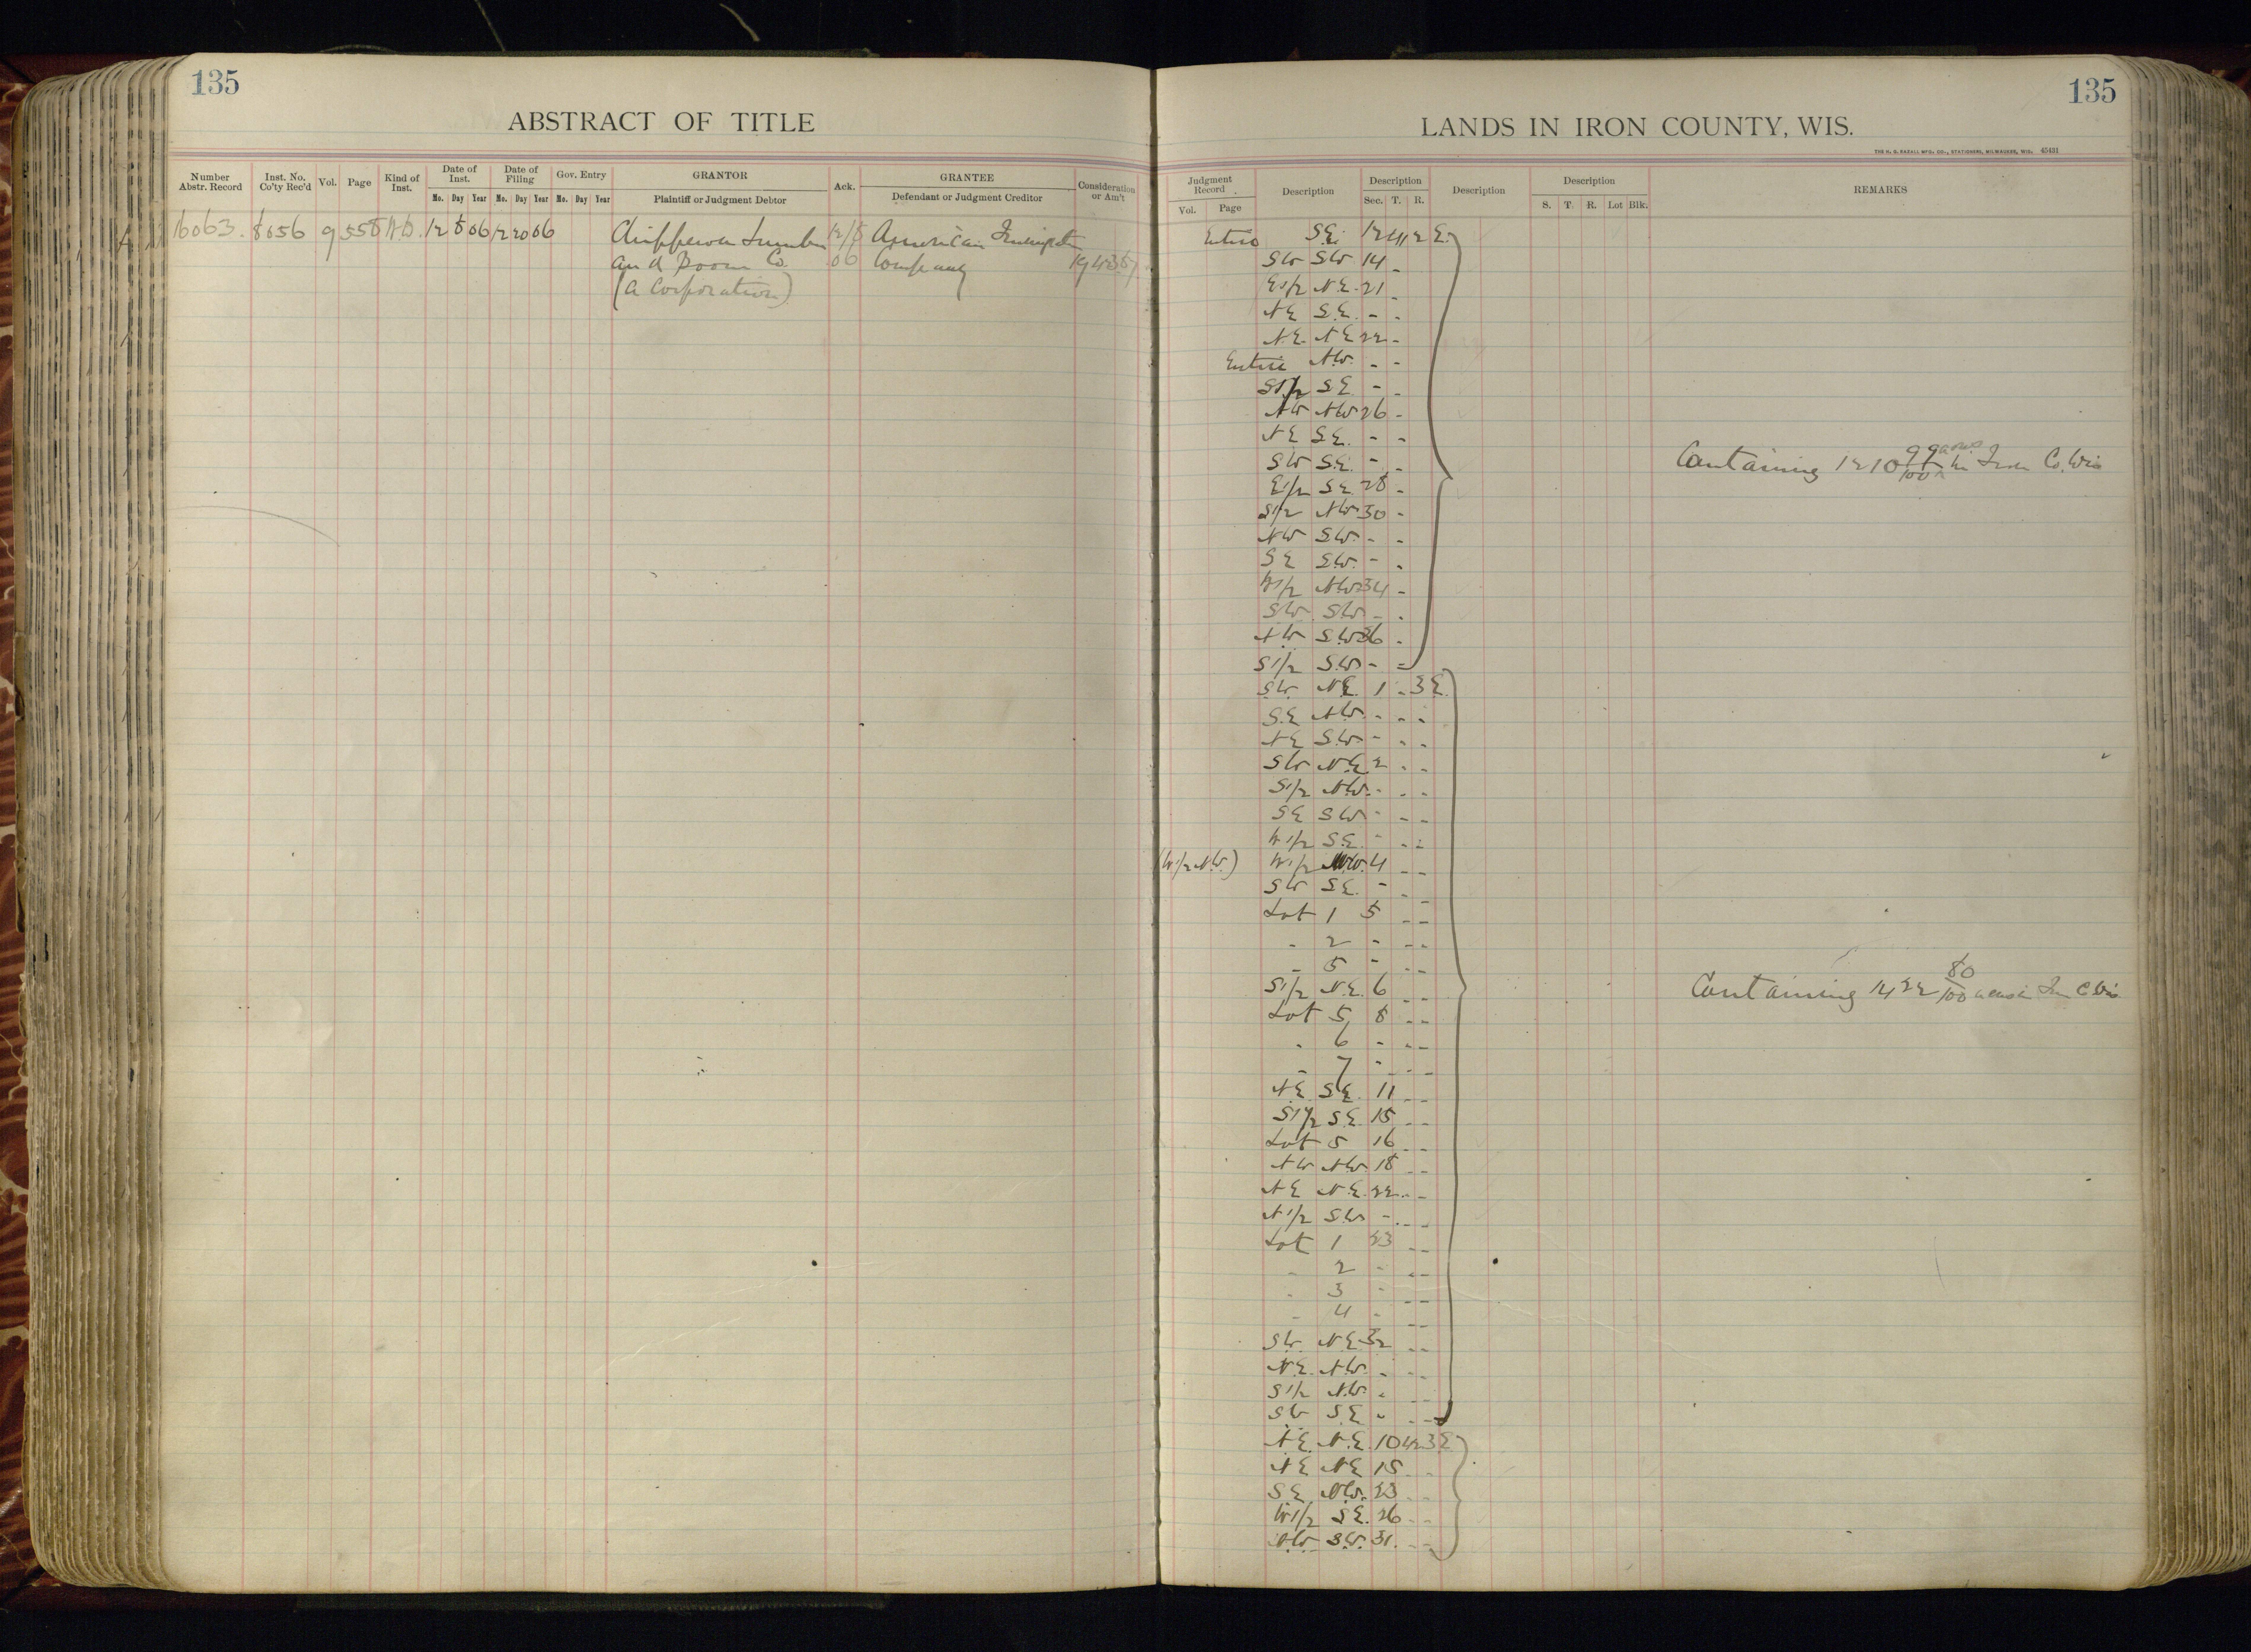 135
ABSTRACT OF TITLE
Number Abstr. Record
Inst. No. Co'ty Rec'd
Vol.
Page
Kind of Inst.
Date of Inst.
Mo. Day Year
Date of Filing
Mo. Day Year
Gov. Entry
Mo. Day Year
GRANTOR
Plaintiff or Judgment Debtor
Ack.
GRANTEE
Defendant or Judgment Creditor
Consideration or Am't
16063. 8056 9 558 W.D. 12 8 06 12 20 06 Chippewa Lumber 12/8 American Immigration
and Boom Co. 06 Company
(a Corporation)
135
LANDS IN IRON COUNTY, WIS.
THE H. G. RAZALL MFG. CO., STATIONERS, MILWAUKEE, WIS. 45431
Judgment Record
Vol. Page
Description
Description
Sec. T. R.
Description
Description
S. T. R. Lot Blk.
REMARKS
Entire S.E. 12 41 2 E.
SW SW 14 -
E1/2 N.E. 21 -
NE S.E. - -
N.E. NE 22 -
Entire NW. - -
S1/2 S.E. - -
NW NW 26 -
NE S.E. - -
SW S.E. - -
Containing 1210 99/100 acres in Iron Co. Wis
E1/2 S.E. 28 -
S1/2 NW 30 -
NW SW. - -
SE S.W. - -
W1/2 NW 34 -
SW. SW - -
NW SW 36 -
S1/2 S.W. - -
S.W. N.E. 1 - 3 E.
S.E. NW. - - -
NE S.W. - - -
SW N.E. 2 - -
S1/2 NW. - - -
SE SW - - -
W1/2 S.E. - - -
(W1/2 N.W.) W1/2 N.W. 4 - -
SW SE. - - -
Lot 1 5 - -
- 2 - - -
- 5 - - -
S1/2 N.E. 6 - -
Containing 1422 80/100 acres in Iron C Wis
Lot 5 8 - -
- 6 - - -
- 7 - - -
N.E. S.E. 11 - -
S1/2 S.E. 15 - -
Lot 5 16 - -
NW NW. 18 - -
NE N.E. 22 - -
N1/2 S.W - - -
Lot 1 23 - -
- 2 - - -
- 3 - - -
- 4 - - -
SW. N.E. 32 - -
N.E. NW. - - -
S1/2 N.W. - - -
SW S.E. - - -
N.E. N.E. 10 42 3 E
NE NE 15 - -
S.E. N.W. 23 - -
W1/2 S.E. 26 - -
N.W. S.W. 31. - -